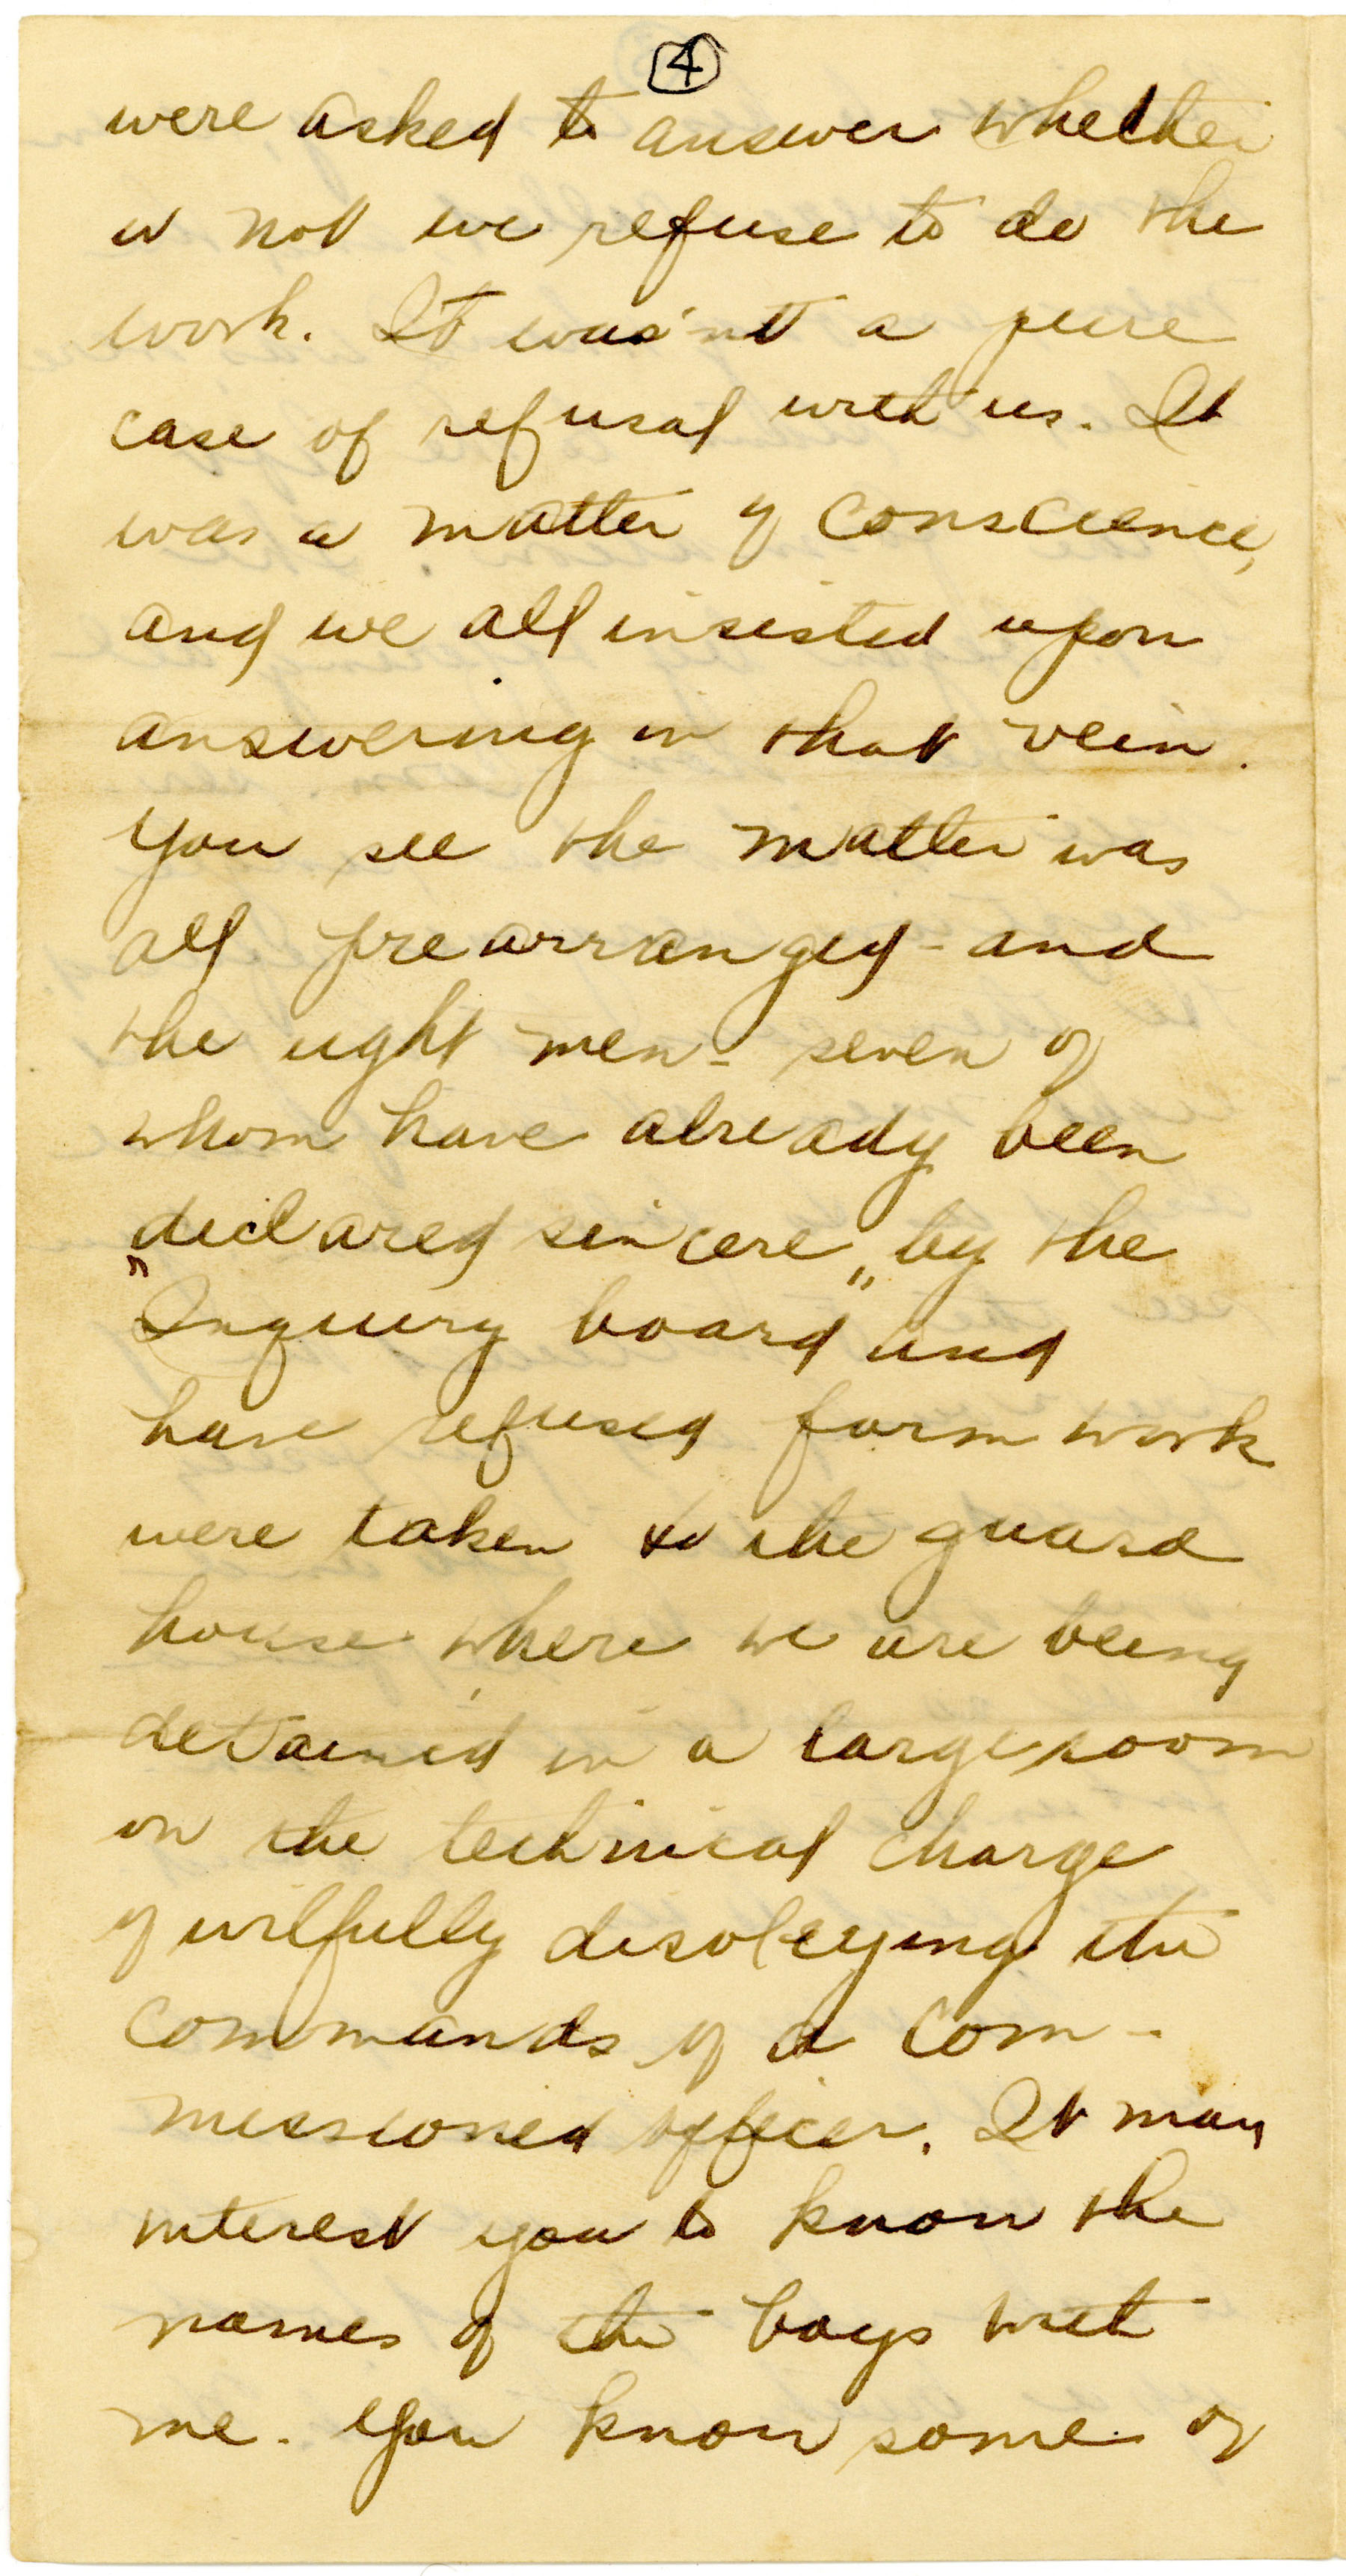 4
were asked to answer whether
or not we refuse to do the
work. It was'nt a pure
case of refusal with us. It
was a matter of conscience,
and we all insisted upon
answering in that vein.
You see the matter was
all prearranged - and
the eight men - seven of
whom have already been
"declared sincere" by the
Inquiry board and
have refused farm work
were taken to the guard
house where we are being
detained in a large room
on the technical charge
of wilfully disobeying the
commands of a com-
missioned officer. It may
interest you to know the
names of the boys with
me. You know some of